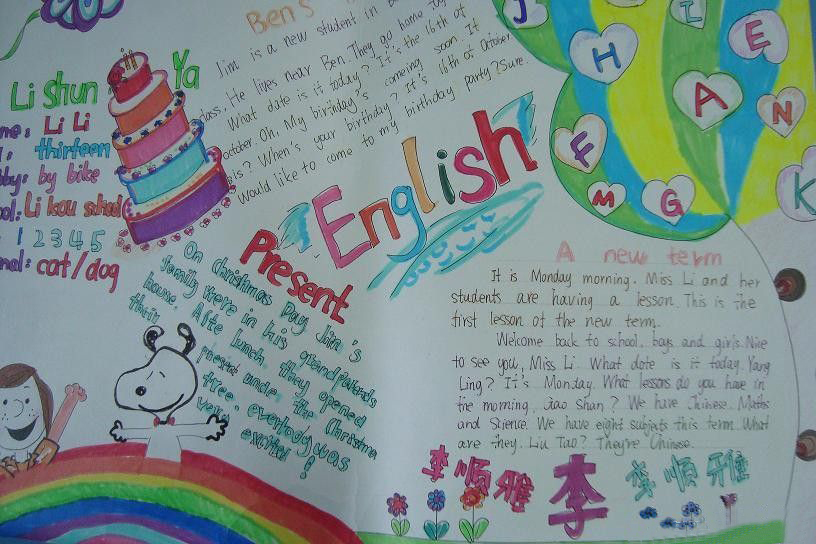 Ben's
Jim is a new student in
class. He lives near Ben. They go home
What date is it today? It's the 16th of
october. Oh, My birthday's comeing soon. It
is? When's your birthday? It's 16th of October.
Would like to come to my birthday party? Sure.
Li shun Ya
me: Li Li
: thirteen
bby: by bike
ool: Li kou school
: 12345
mal: cat/dog
English
Present
On Christmas Day Jim's
family were in his grandparents
house. Afte lunch. they opened
their present unde. the Christma
tree. everybody was
very excited!
J
H
I
E
A
N
F
M
G
K
A new term
It is Monday morning. Miss Li and her
students are having a lesson. This is the
first lesson of the new term.
Welcome back to school, boys and girls. Nice
to see you, Miss Li. What date is it today. Yang
Ling? It's Monday. What lessons do you have in
the morning, Gao Shan? We have Chinese. Maths
and Science. We have eight subjets this term. What
are they. Liu Tao? They're Chinese.
李顺雅 李 李顺雅